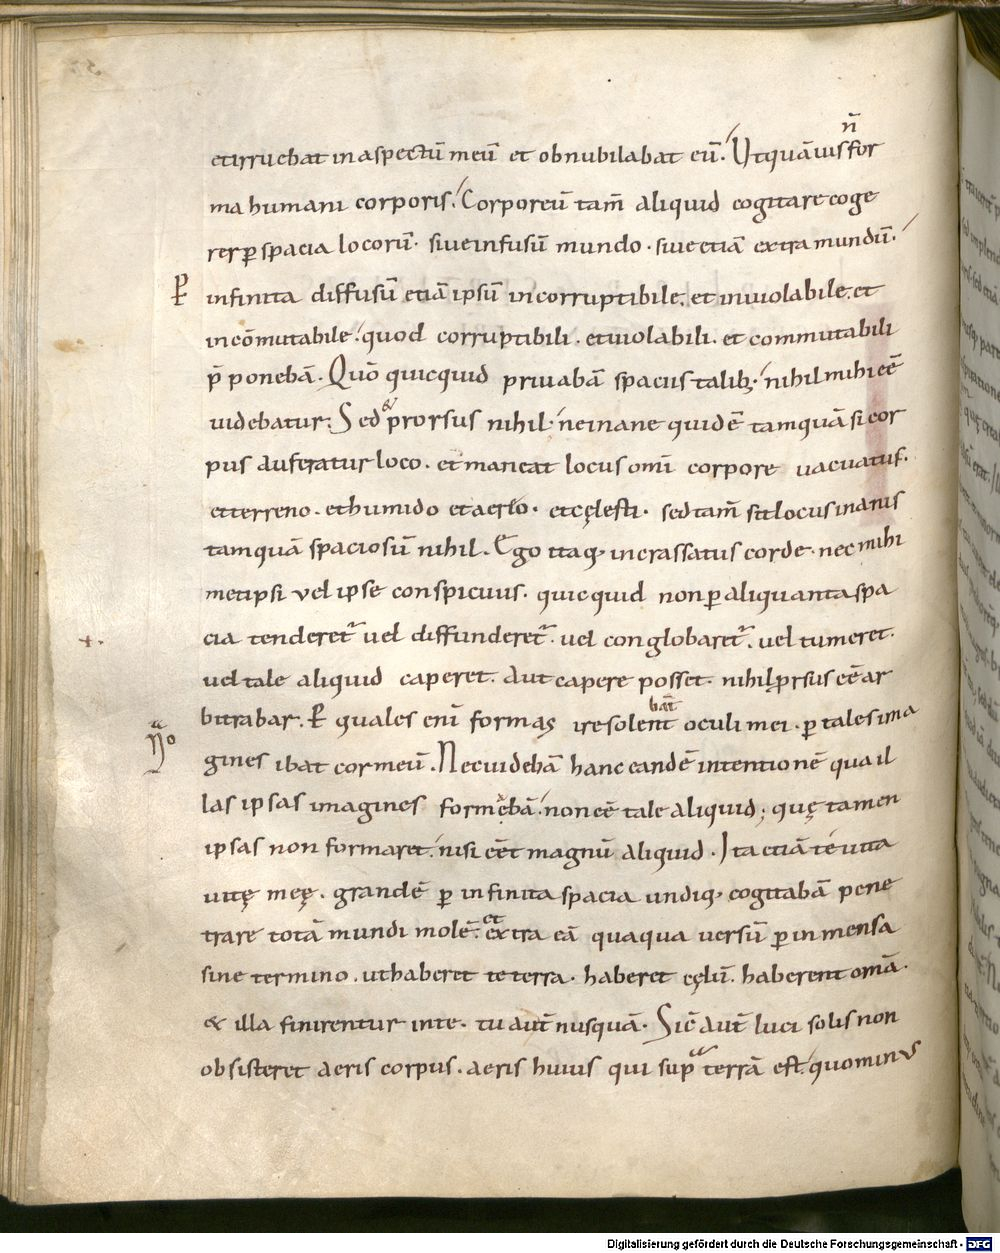 n̄
etirruebat in aspectū meū et obnubilabat eū. Vt quāuis for
ma humani corporis. Corporeū tam̄ aliquid cogitare coge
rer ꝑ spacia locorū. siue infusū mundo. siue etiā extra mundū.
infinita diffusū etiā ipsū incorruptibile. et inuiolabile. et
incōmutabile. quod corruptibili. et uiolabili. et commutabili
p̄ponebā. Quō quicquid priuabā spaciis talib; nihil mihi eē
uidebatur; Sed & prorsus nihil. ne inane quidē tamquā si cor
pus auferatur loco. et maneat locus omī corpore uacuatus.
et terreno. et humido et aerio. et cęlesti. sed tam̄ sit locus inanis
tamquā spaciosū nihil. Ego itaq; incrassatus corde. nec mihi
metipsi vel ipse conspicuus. quicquid non ꝑ aliquanta spa
cia tenderet᷑ uel diffunderet᷑. uel conglobaret᷑. uel tumeret.
uel tale aliquid caperet. Aut capere posset. nihil prsus eē ar
bitrabar. P quales enī formas ire solent bāt oculi mei. ꝑ tales ima
gines ibat cor meū. Nec uidebā hanc eandē intentionē qua il
las ipsas imagines formębā. non eē tale aliquid; quę tamen
ipsas non formaret. nisi eēt magnū aliquid. Ita etiā tē uita
uitę meę. grandē ꝑ infinita spacia undiq; cogitabā pene
trare totā mundi molē. et extra eā quaqua uersū ꝑ inmensa
sine termino. ut haberet te terra. haberet cęlū. haberent om̄a.
& illa finirentur in te. tu aut̄ nusquā. Sic̄ aut̄ luci solis non
obsisteret aeris corpus. aeris huius qui sup terrā est. quominus